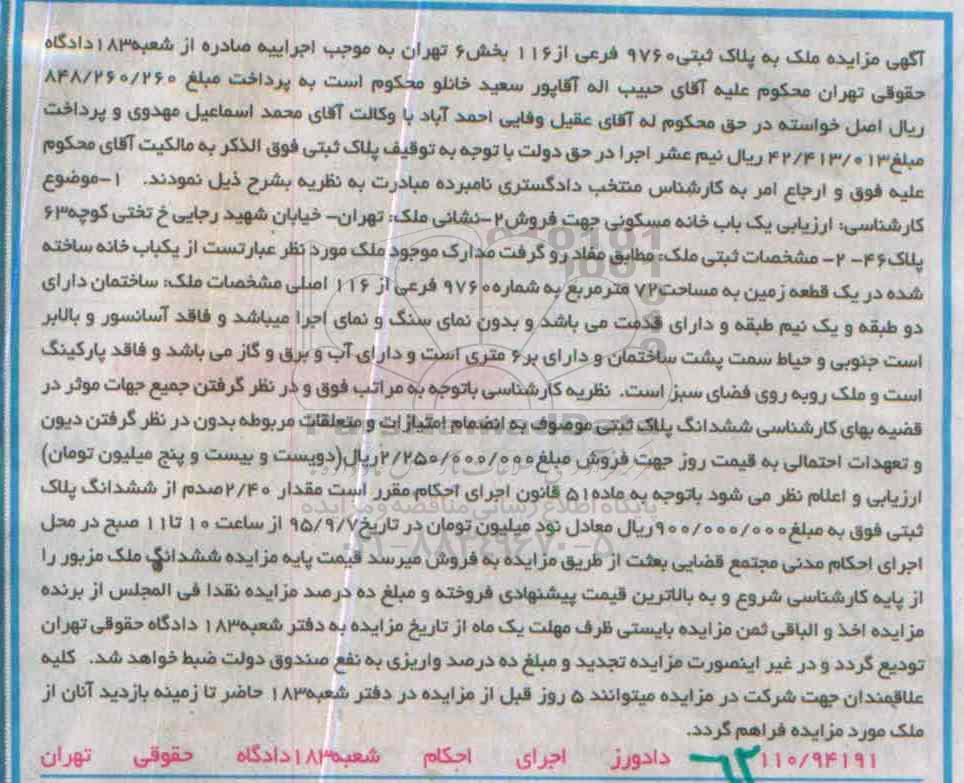 آگهی مزایده ملک به پلاک ثبتی ۹۷۶۰ فرعی از ۱۱۶ بخش ۶ تهران به موجب اجراییه صادره از شعبه ۱۸۳ دادگاه
حقوقی تهران محکوم علیه آقای حبیب اله آقاپور سعید خانلو محکوم است به پرداخت مبلغ ۸۴۸/۲۶۰/۲۶۰
ریال اصل خواسته در حق محکوم له آقای عقیل وفایی احمد آباد با وکالت آقای محمد اسماعیل مهدوی و پرداخت
مبلغ ۴۲/۴۱۳/۰۱۳ ریال نیم عشر اجرا در حق دولت با توجه به توقیف پلاک ثبتی فوق الذکر به مالکیت آقای محکوم
علیه فوق و ارجاع امر به کارشناس منتخب دادگستری نامبرده مبادرت به نظریه بشرح ذیل نمودند. ۱-موضوع
کارشناسی: ارزیابی یک باب خانه مسکونی جهت فروش ۲-نشانی ملک: تهران- خیابان شهید رجایی خ تختی کوچه ۶۳
پلاک ۴۶- ۲- مشخصات ثبتی ملک: مطابق مفاد رو گرفت مدارک موجود ملک مورد نظر عبارتست از یکباب خانه ساخته
شده در یک قطعه زمین به مساحت ۷۲ مترمربع به شماره ۹۷۶۰ فرعی از ۱۱۶ اصلی مشخصات ملک: ساختمان دارای
دو طبقه و یک نیم طبقه و دارای قدمت می باشد و بدون نمای سنگ و نمای اجرا میباشد و فاقد آسانسور و بالابر
است جنوبی و حیاط سمت پشت ساختمان و دارای بر ۶ متری است و دارای آب و برق و گاز می باشد و فاقد پارکینگ
است و ملک روبه روی فضای سبز است. نظریه کارشناسی باتوجه به مراتب فوق و در نظر گرفتن جمیع جهات موثر در
قضیه بهای کارشناسی ششدانگ پلاک ثبتی موصوف به انضمام امتیازات و متعلقات مربوطه بدون در نظر گرفتن دیون
و تعهدات احتمالی به قیمت روز جهت فروش مبلغ ۲/۲۵۰/۰۰۰/۰۰۰ ریال(دویست و بیست و پنج میلیون تومان)
ارزیابی و اعلام نظر می شود باتوجه به ماده ۵۱ قانون اجرای احکام مقرر است مقدار ۲/۴۰ صدم از ششدانگ پلاک
ثبتی فوق به مبلغ ۹۰۰/۰۰۰/۰۰۰ ریال معادل نود میلیون تومان در تاریخ ۹۵/۹/۷ از ساعت ۱۰ تا ۱۱ صبح در محل
اجرای احکام مدنی مجتمع قضایی بعثت از طریق مزایده به فروش میرسد قیمت پایه مزایده ششدانگ ملک مزبور را
از پایه کارشناسی شروع و به بالاترین قیمت پیشنهادی فروخته و مبلغ ده درصد مزایده نقدا فی المجلس از برنده
مزایده اخذ و الباقی ثمن مزایده بایستی ظرف مهلت یک ماه از تاریخ مزایده به دفتر شعبه ۱۸۳ دادگاه حقوقی تهران
تودیع گردد و در غیر اینصورت مزایده تجدید و مبلغ ده درصد واریزی به نفع صندوق دولت ضبط خواهد شد. کلیه
علاقمندان جهت شرکت در مزایده میتوانند ۵ روز قبل از مزایده در دفتر شعبه ۱۸۳ حاضر تا زمینه بازدید آنان از
ملک مورد مزایده فراهم گردد.
۱۱۰/۹۴۱۹۱ دادورز اجرای احکام شعبه ۱۸۳ دادگاه حقوقی تهران